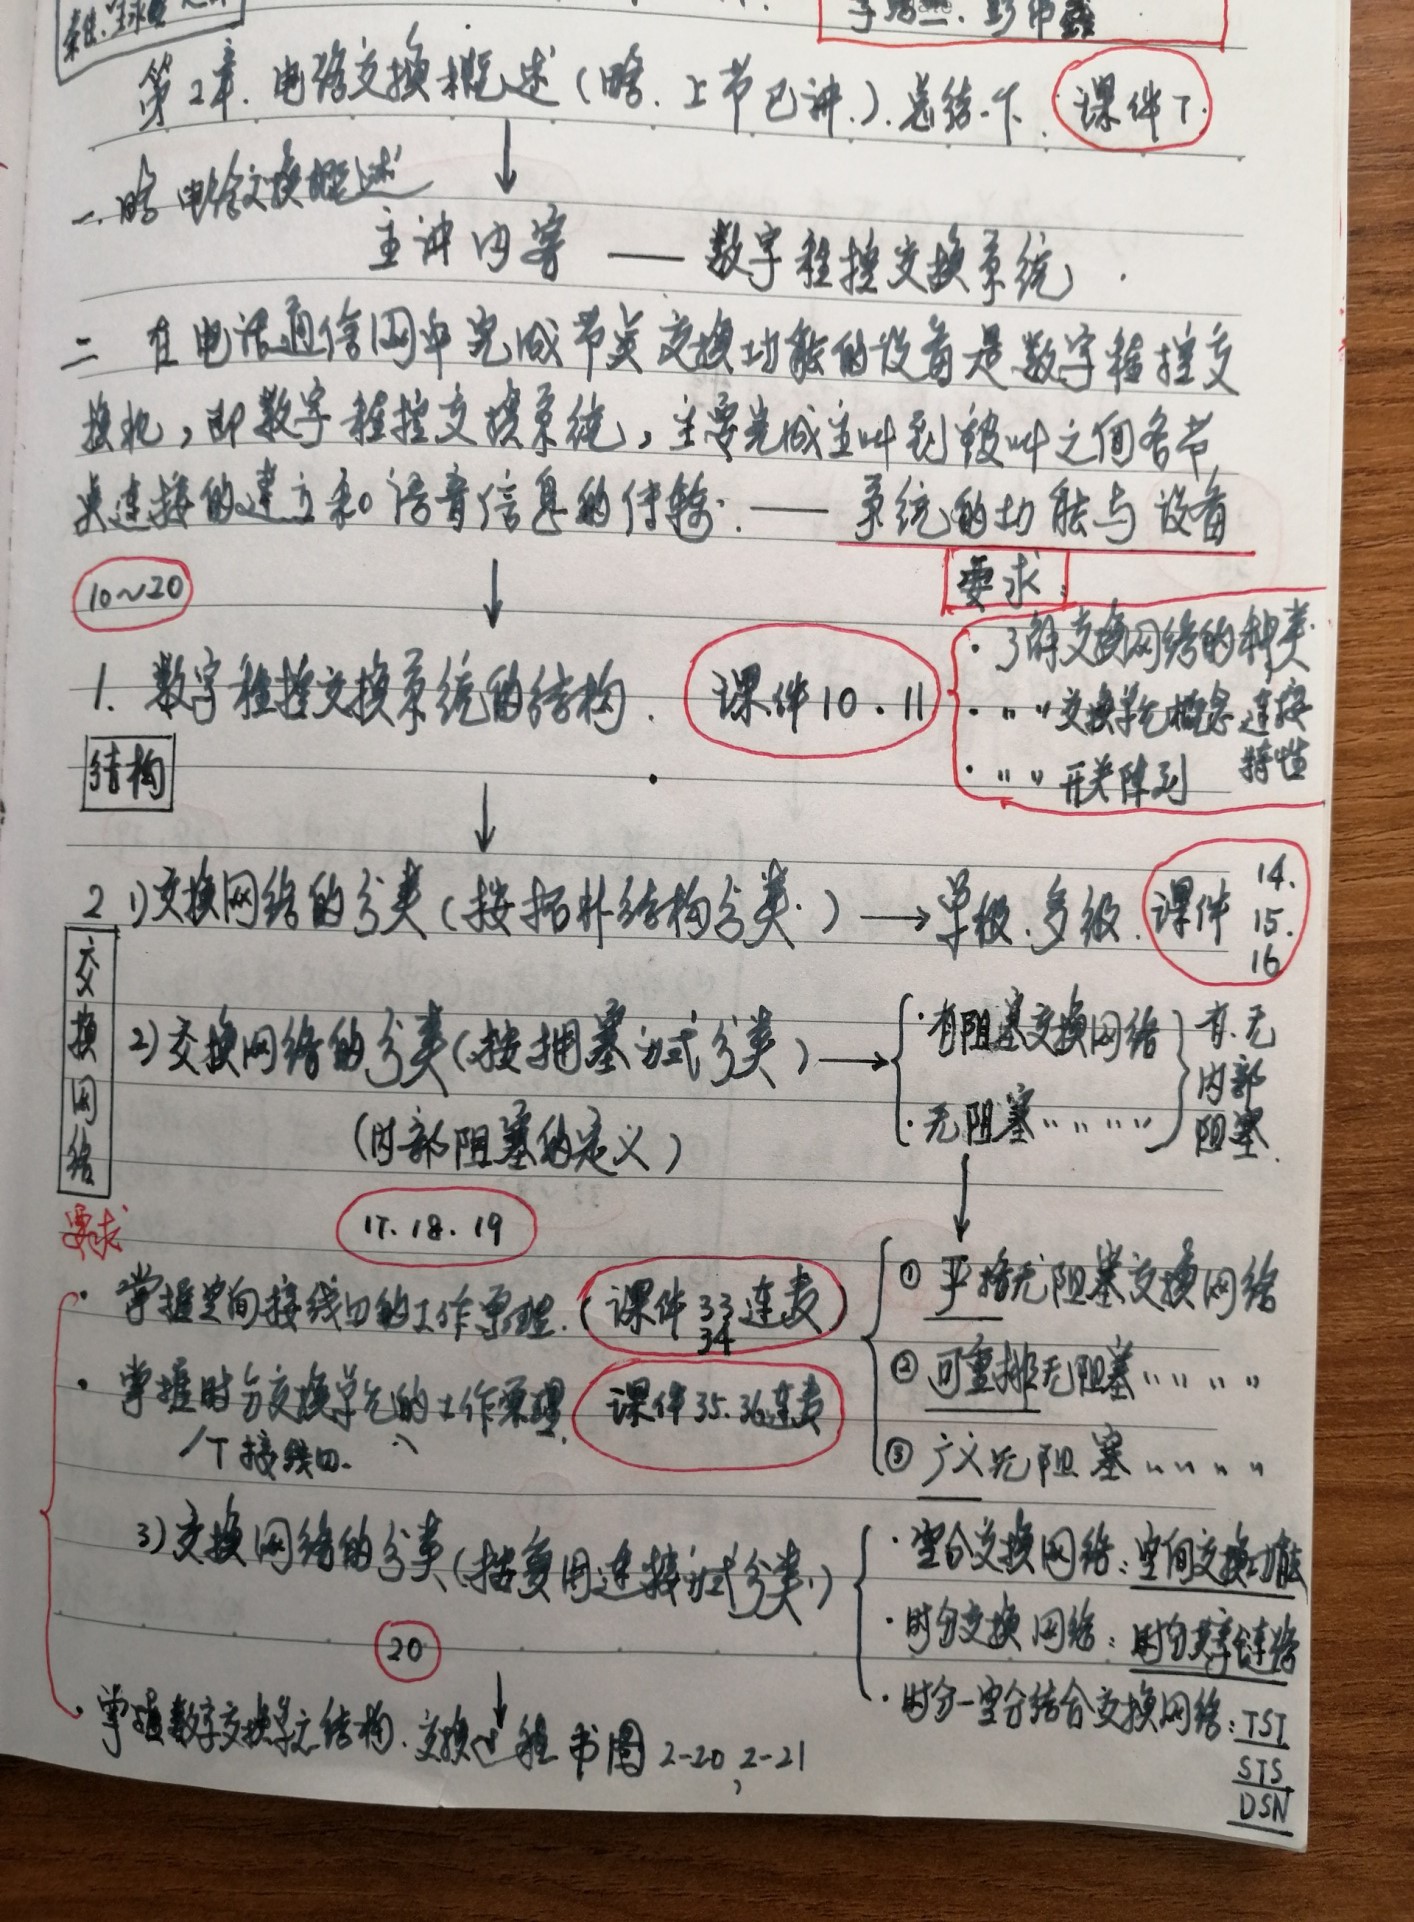 第2章.电路交换概述(略.上节已讲.).总结一下.课件7.
一.略 电信交换概述
主讲内容 —— 数字程控交换系统
二 在电话通信网中完成节点交换功能的设备是数字程控交
换机,即数字程控交换系统,主要完成主叫到被叫之间各节
点连接的建立和语音信息的传输.—— 系统的功能与设备
10~20
要求:
1. 数字程控交换系统的结构. 课件10.11
· 了解交换网络的种类
· 〃 〃 交换单元概念 连接特性
· 〃 〃 开关阵列
结构
2 1)交换网络的分类(按拓扑结构分类.) → 单级.多级. 课件 14. 15. 16
交换网络
2)交换网络的分类(按拥塞方式分类) →
· 有阻塞交换网络
· 无阻塞 〃 〃 〃 〃
有.无内部阻塞.
(内部阻塞的定义)
17.18.19
① 严格无阻塞交换网络
② 可重排无阻塞 〃 〃 〃 〃
③ 广义无阻塞 〃 〃 〃 〃
要求
· 掌握空间接线口的工作原理.(课件 33 34 连麦)
· 掌握时分交换单元的工作原理. 课件35.36连麦
T接线口.
3)交换网络的分类(按复用连接方式分类.)
· 空分交换网络:空间交换功能
· 时分交换网络:时分共享链路
· 时分—空分结合交换网络:TST
STS
DSN
20
· 掌握数字交换单元结构.交换过程 书图2-20,2-21